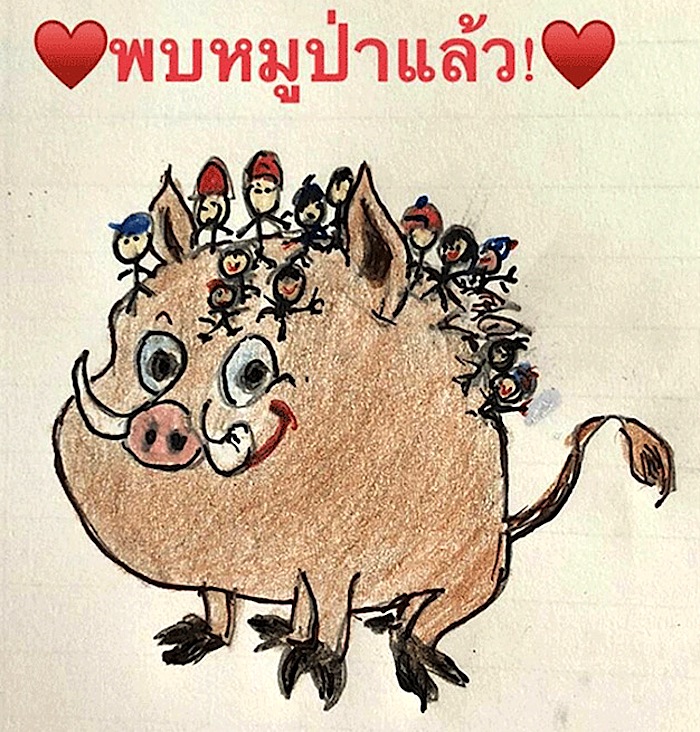 ❤️พบหมูป่าแล้ว!❤️